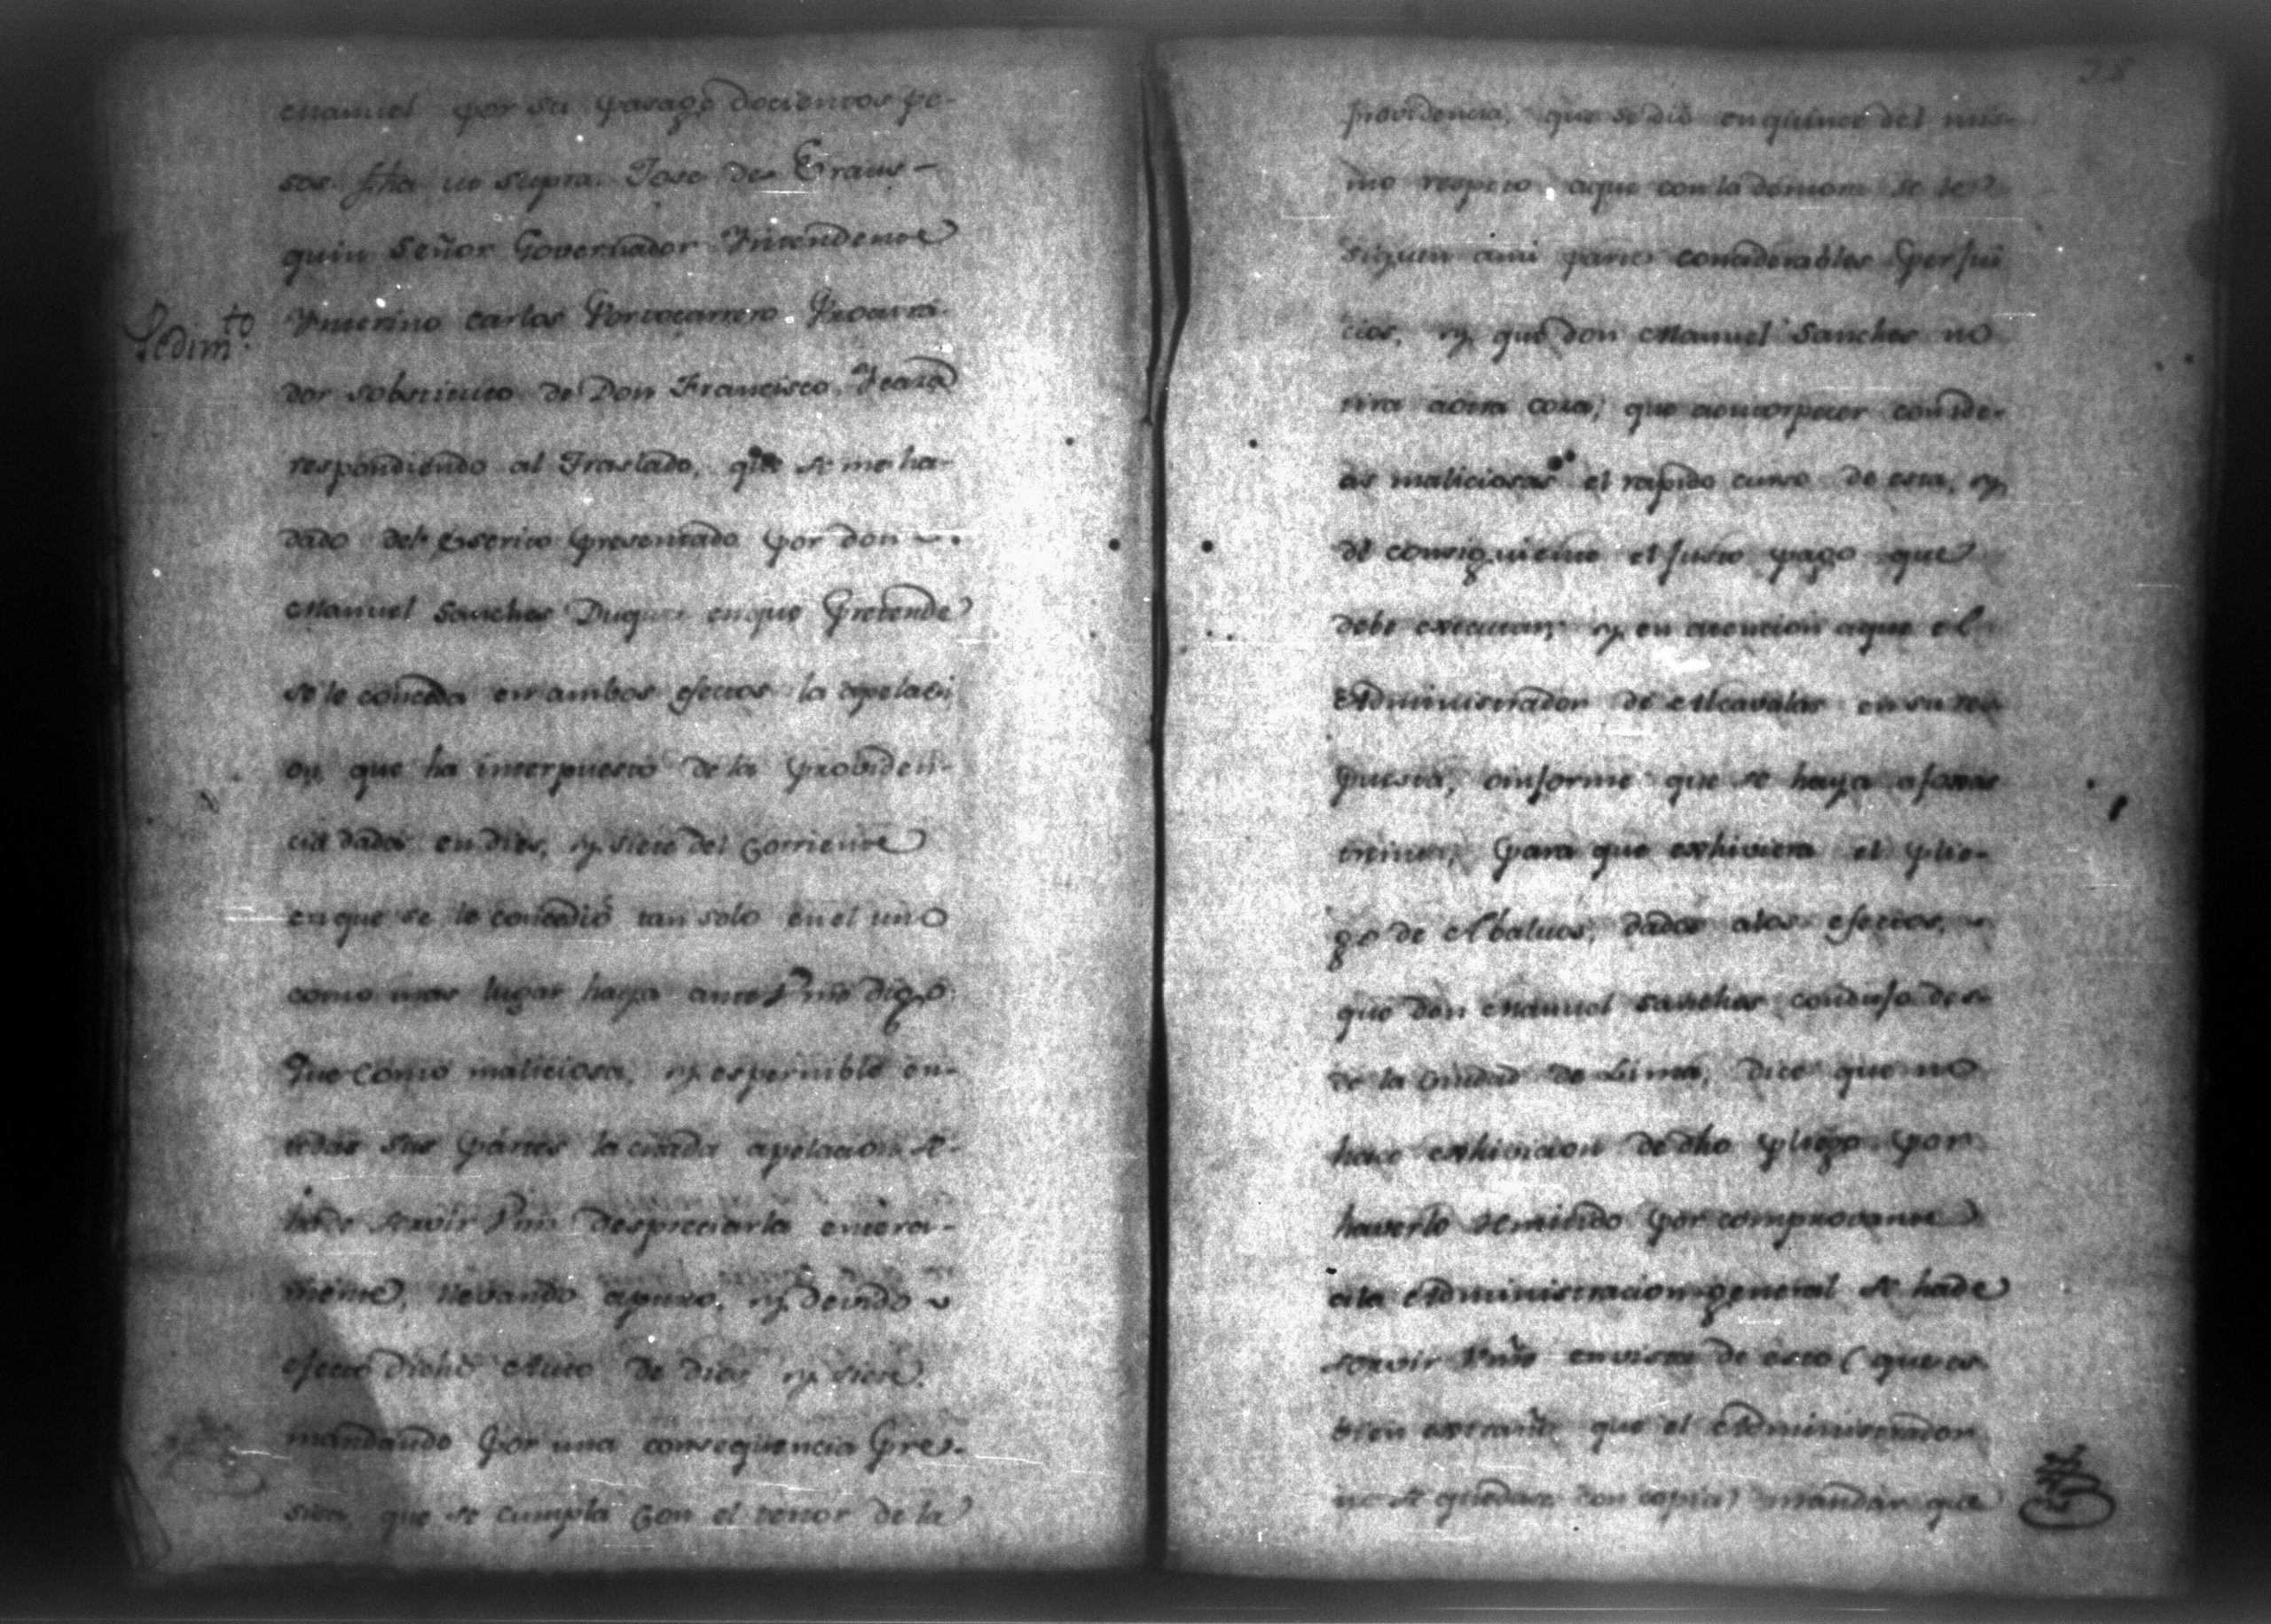 Manuel por su pasage docientos pe-
sos. fha ut supra. Jose de Eraus-
quin Señor Governador Yntendente
Pedim.to
Ynterino Carlos Portocarrero Procura-
dor sobstituto de Don Francisco
respondiendo al Traslado, que se me ha
dado del Escrito presentado por don
Manuel Sanches Duque enque Pretende
se le conceda en ambos efectos la apelaci
on, que ha interpuesto de la Probiden-
cia dada en dies, y siete del Corriente
enque se le concedió tan solo en el uno
como mas lugar haya ante Vmd digo
Que como maliciosa, y
todas sus partes la citada apelacion se
ha de servir Vmd despreciarla entera-
mente, llevando apuro, y devido
efecto dicho Auto de dies y siete.
mandando Por una consequencia Pre-
sisa, que se cumpla Con el tenor de la
38
Providencia, que se dió en quince del mis-
mo respeto aque con la demora se le
siguen ami parte considerables Perjui
cios, y que don Manuel Sanches no
tira aotra cosa, que aentorpecer con ide-
as maliciosas el rapido curso de esta, y
de consiguiente el Justo pago que
debe executar; y en atencion aque el
Administrador de Alcavalas en su res-
puesta, oinforme que se haya afoxas
treinta, Para que exhiviera el plie-
go de Abaluos, dados alos efectos,
que don Manuel Sanches condujo des-
de la Ciudad de Lima, dice que no
hace exhivicion de dho pliego por
haverlo remitido por comprovante
ala Administracion general se hade
servir Vmd envista de esto (que es
bien extraño que el Administrador
no se quedara con copia) mandar que